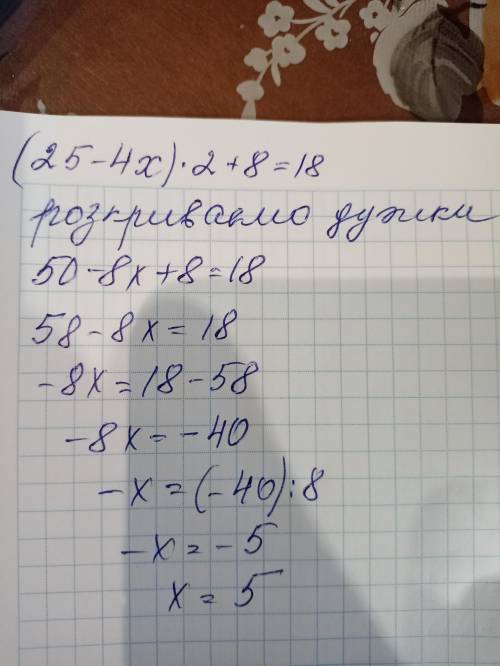 (25-4x)·2+8=18
розкриваємо дужки
50-8x+8=18
58-8x=18
-8x=18-58
-8x=-40
-x=(-40):8
-x=-5
x=5